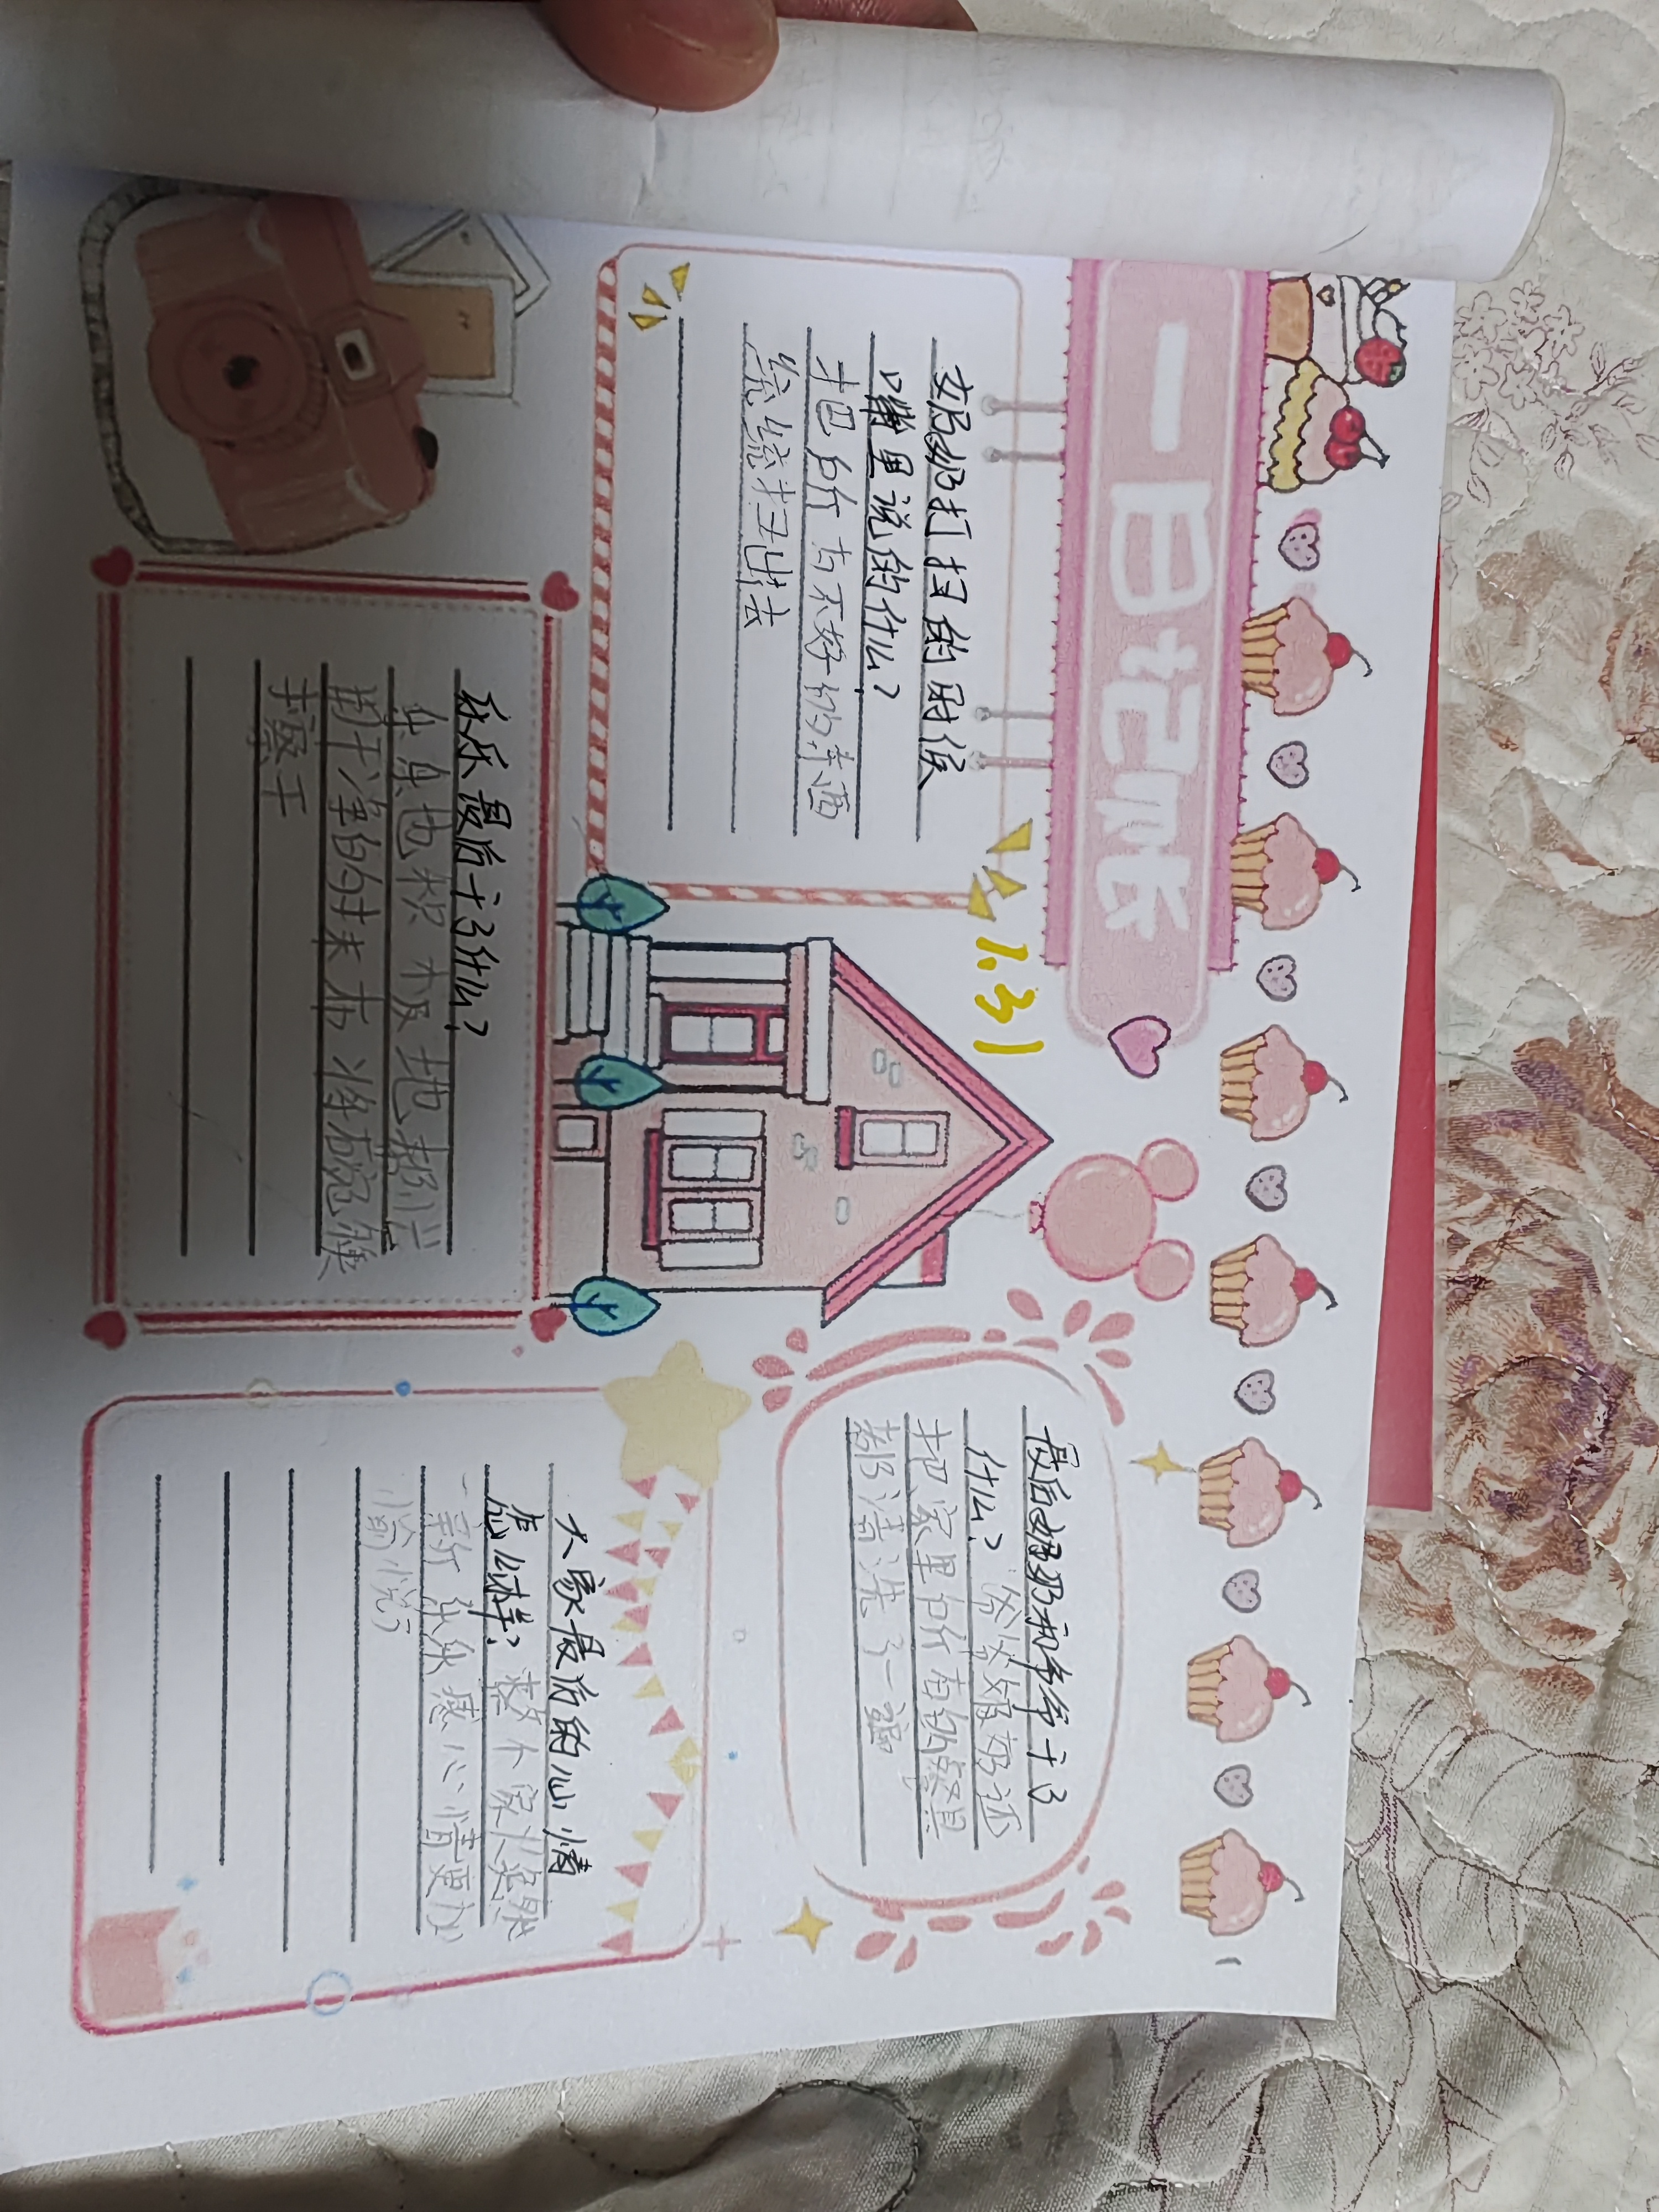 一日记账
1.31
奶奶打扫的时候
嘴里说的什么?
把所有不好的东西
统统扫出去
最后奶奶和爷爷干了
什么? 爷爷奶奶还
把家里所有的餐具
都清洗了一遍
乐乐最后干了什么?
乐乐也积极地帮忙
用干净的抹布将碗碟
擦干
大家最后的心情
怎么样? 整个家焕然
一新 乐乐感心情更加
愉悦了